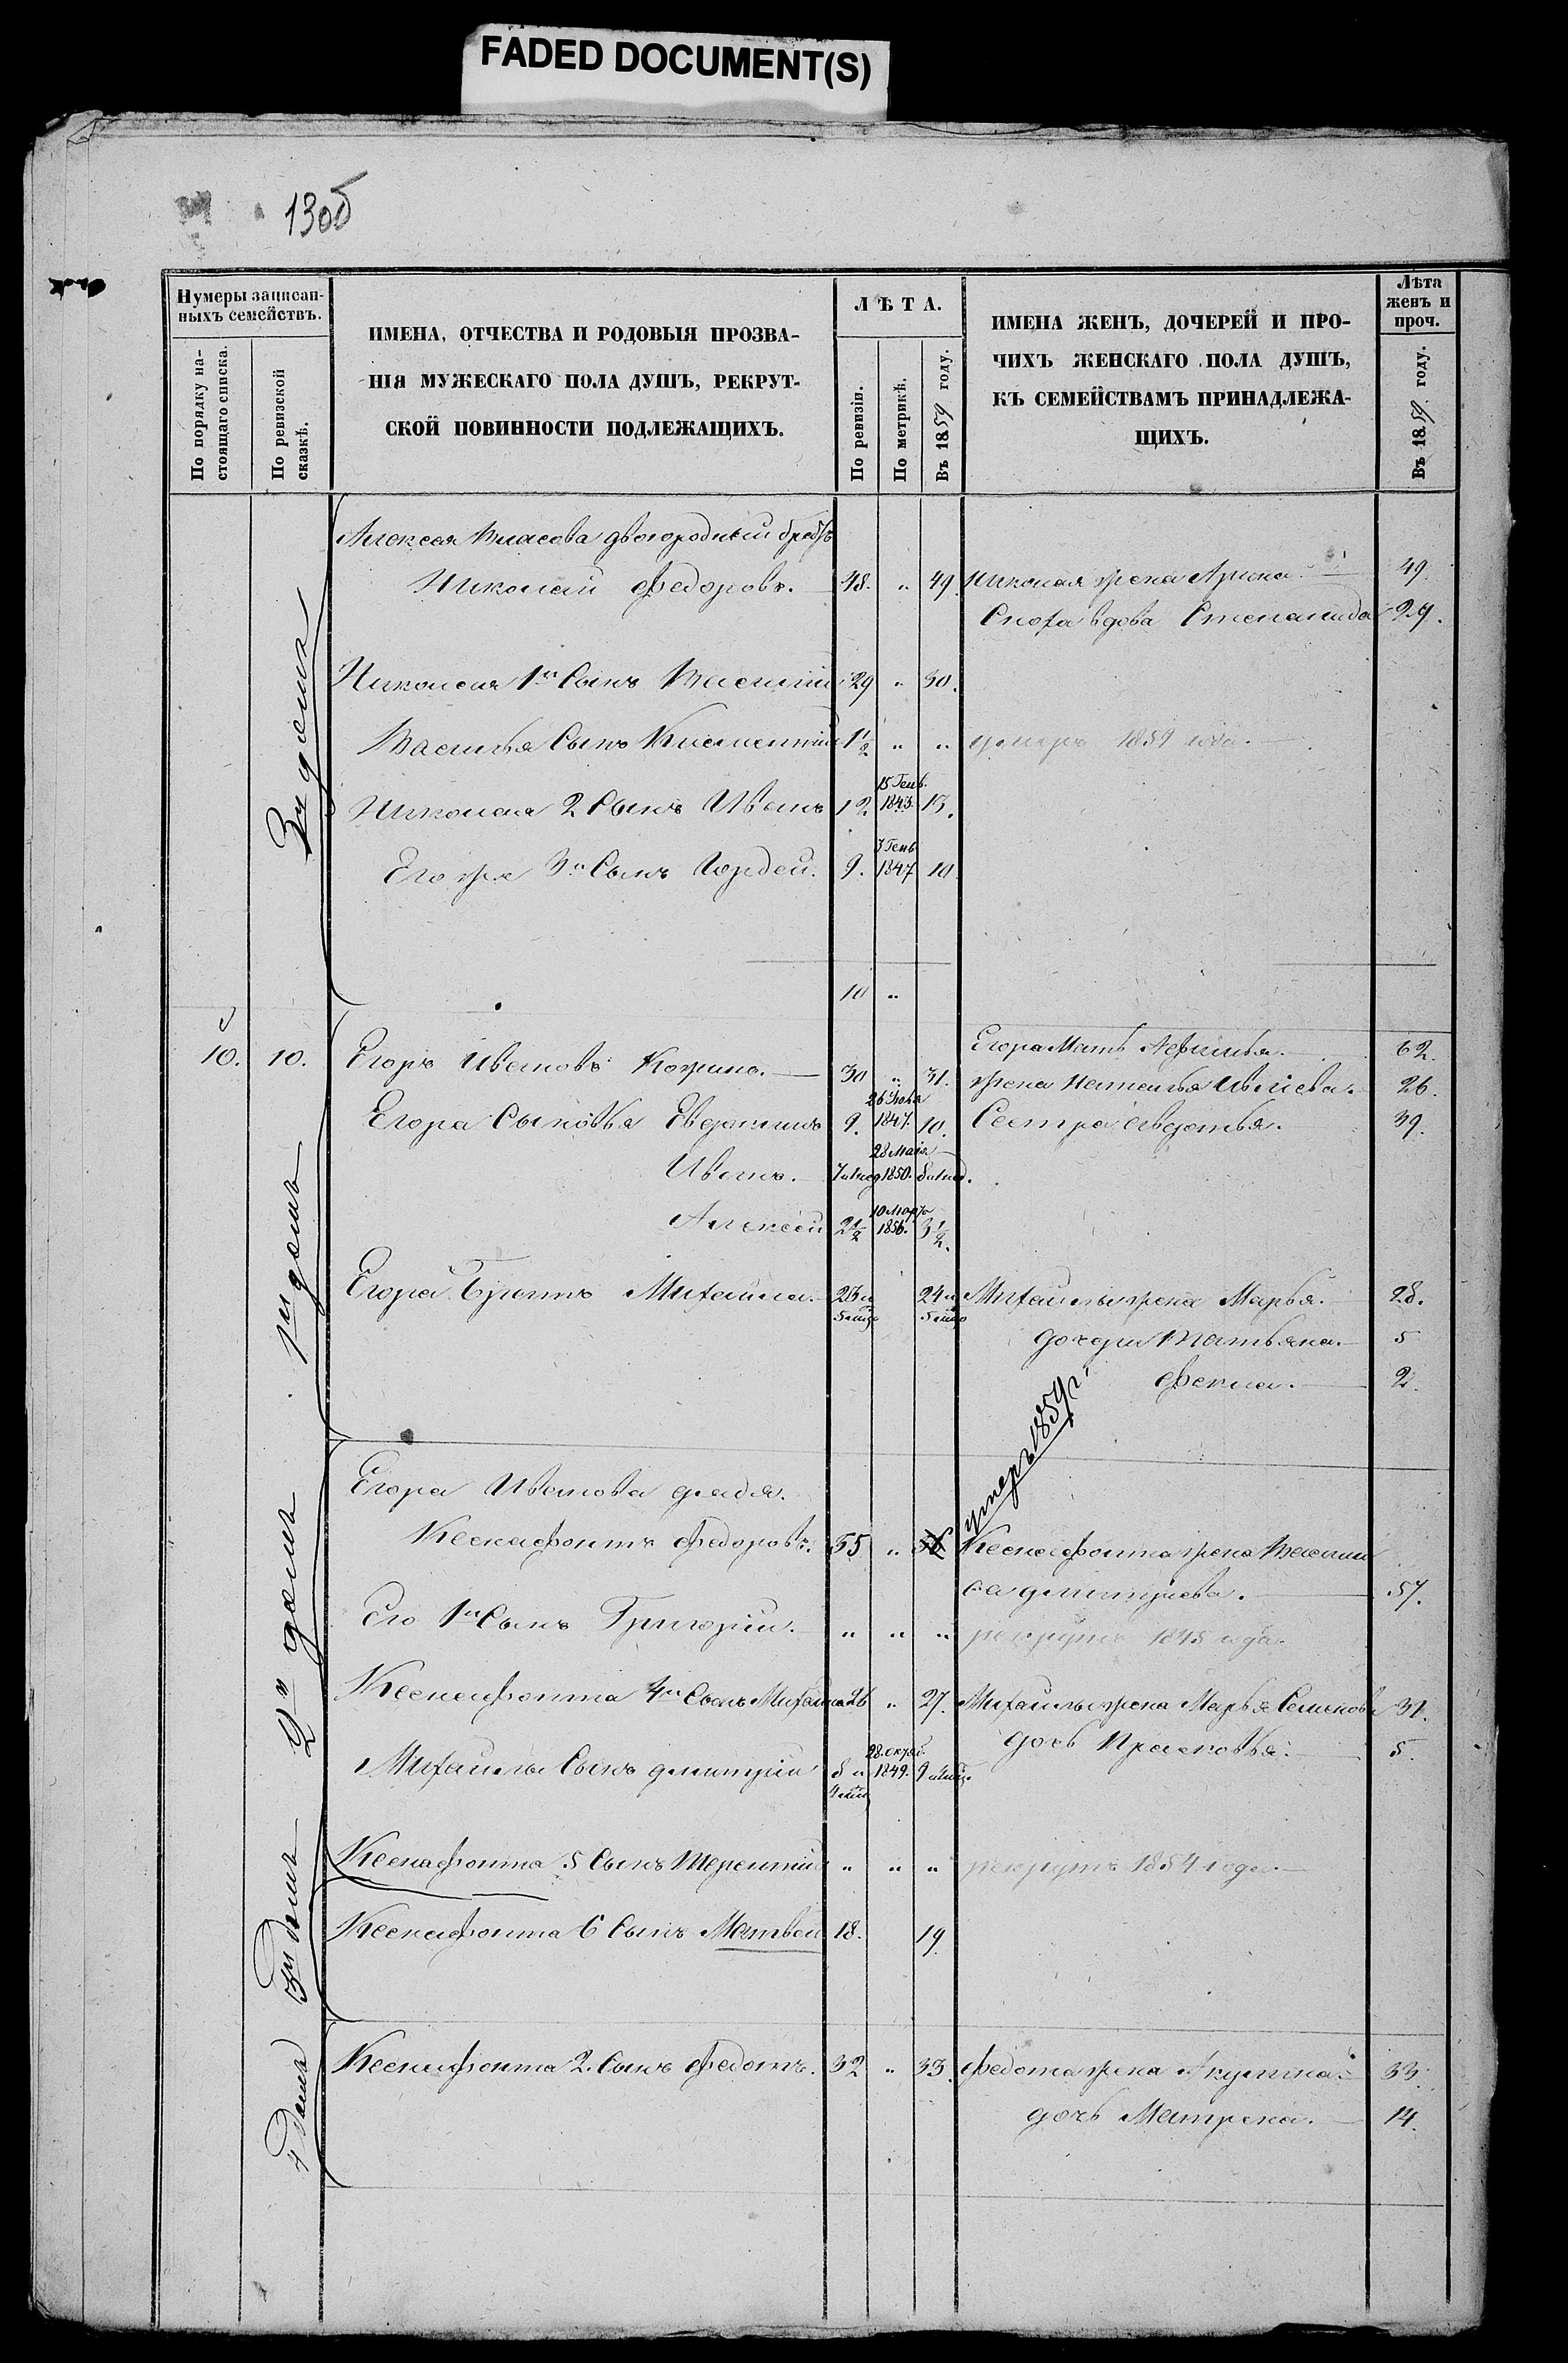 FADED DOCUMENT(S)
130б
Нумеры записан-
ныхъ семействъ.
По порядку на-
стоящаго списка.
По ревизской
сказкѣ.
ИМЕНА, ОТЧЕСТВА И РОДОВЫЯ ПРОЗВА-
НІЯ МУЖЕСКАГО ПОЛА ДУШЪ, РЕКРУТ-
СКОЙ ПОВИННОСТИ ПОДЛЕЖАЩИХЪ.
ЛѢТА.
По ревизіи.
По метрикѣ.
Въ 1859 году.
ИМЕНА ЖЕНЪ, ДОЧЕРЕЙ И ПРО-
ЧИХЪ ЖЕНСКАГО ПОЛА ДУШЪ,
КЪ СЕМЕЙСТВАМЪ ПРИНАДЛЕЖА-
ЩИХЪ.
Лѣта
женъ и
проч.
Въ 1859 году.
3й домъ
Алексея Власова двоюродный братъ
Николай Федоровъ. 48. " 49. Николая жена Арина. 49.
Сноха вдова Степанида 29.
Николая 1й Сынъ Василий 29 " 30.
Василья Сынъ Климентий 1½ " " умеръ 1859 года.
Николая 2 Сынъ Иванъ 12 15 Генв. 1843. 13.
Его же 3й Сынъ Гордей. 9. 3 Генв 1847 10.
10 "
1й домъ
10. 10. Егоръ Ивановъ 30 " 31.
Егора Мать 62.
жена Наталья 26.
Егора Сыновья Евдокимъ 9. 1847. 10. Сестра Авдотья. 39.
Иванъ. 28 Маія 1850.
Алексей 2½ 10 Марта 1856. 3½.
Егора Братъ Михаила. 23 и 5 мѣс 24 и 5 мѣс Михайлы жена Марья. 28.
дочери Татьяна. 5
Фекла. 2.
2й домъ
Егора Иванова дядя.
умеръ 1859 г.
Ксенофонтъ Федоровъ. 55 " 56 Ксенофонта жена Васили
са Дмитриева. 57.
Его 1й Сынъ Григорий. " " " рекрутъ 1845 года.
Ксенофонта 4й Сынъ Михайла 26 " 27. Михайлы жена Марья Семенова 31.
дочь Прасковья. 5.
Михайлы Сынъ Дмитрий 8 и 4 мѣс 28 октяб. 1849. 9
3й домъ
Ксенофонта 5 Сынъ Терентий " " " рекрутъ 1854 года.
Ксенофонта 6 Сынъ Матвей 18. 19
4 домъ
Ксенофонта 2. Сынъ Федотъ. 32 " 33. Федота жена Акулина. 33.
дочь Матрена. 14.